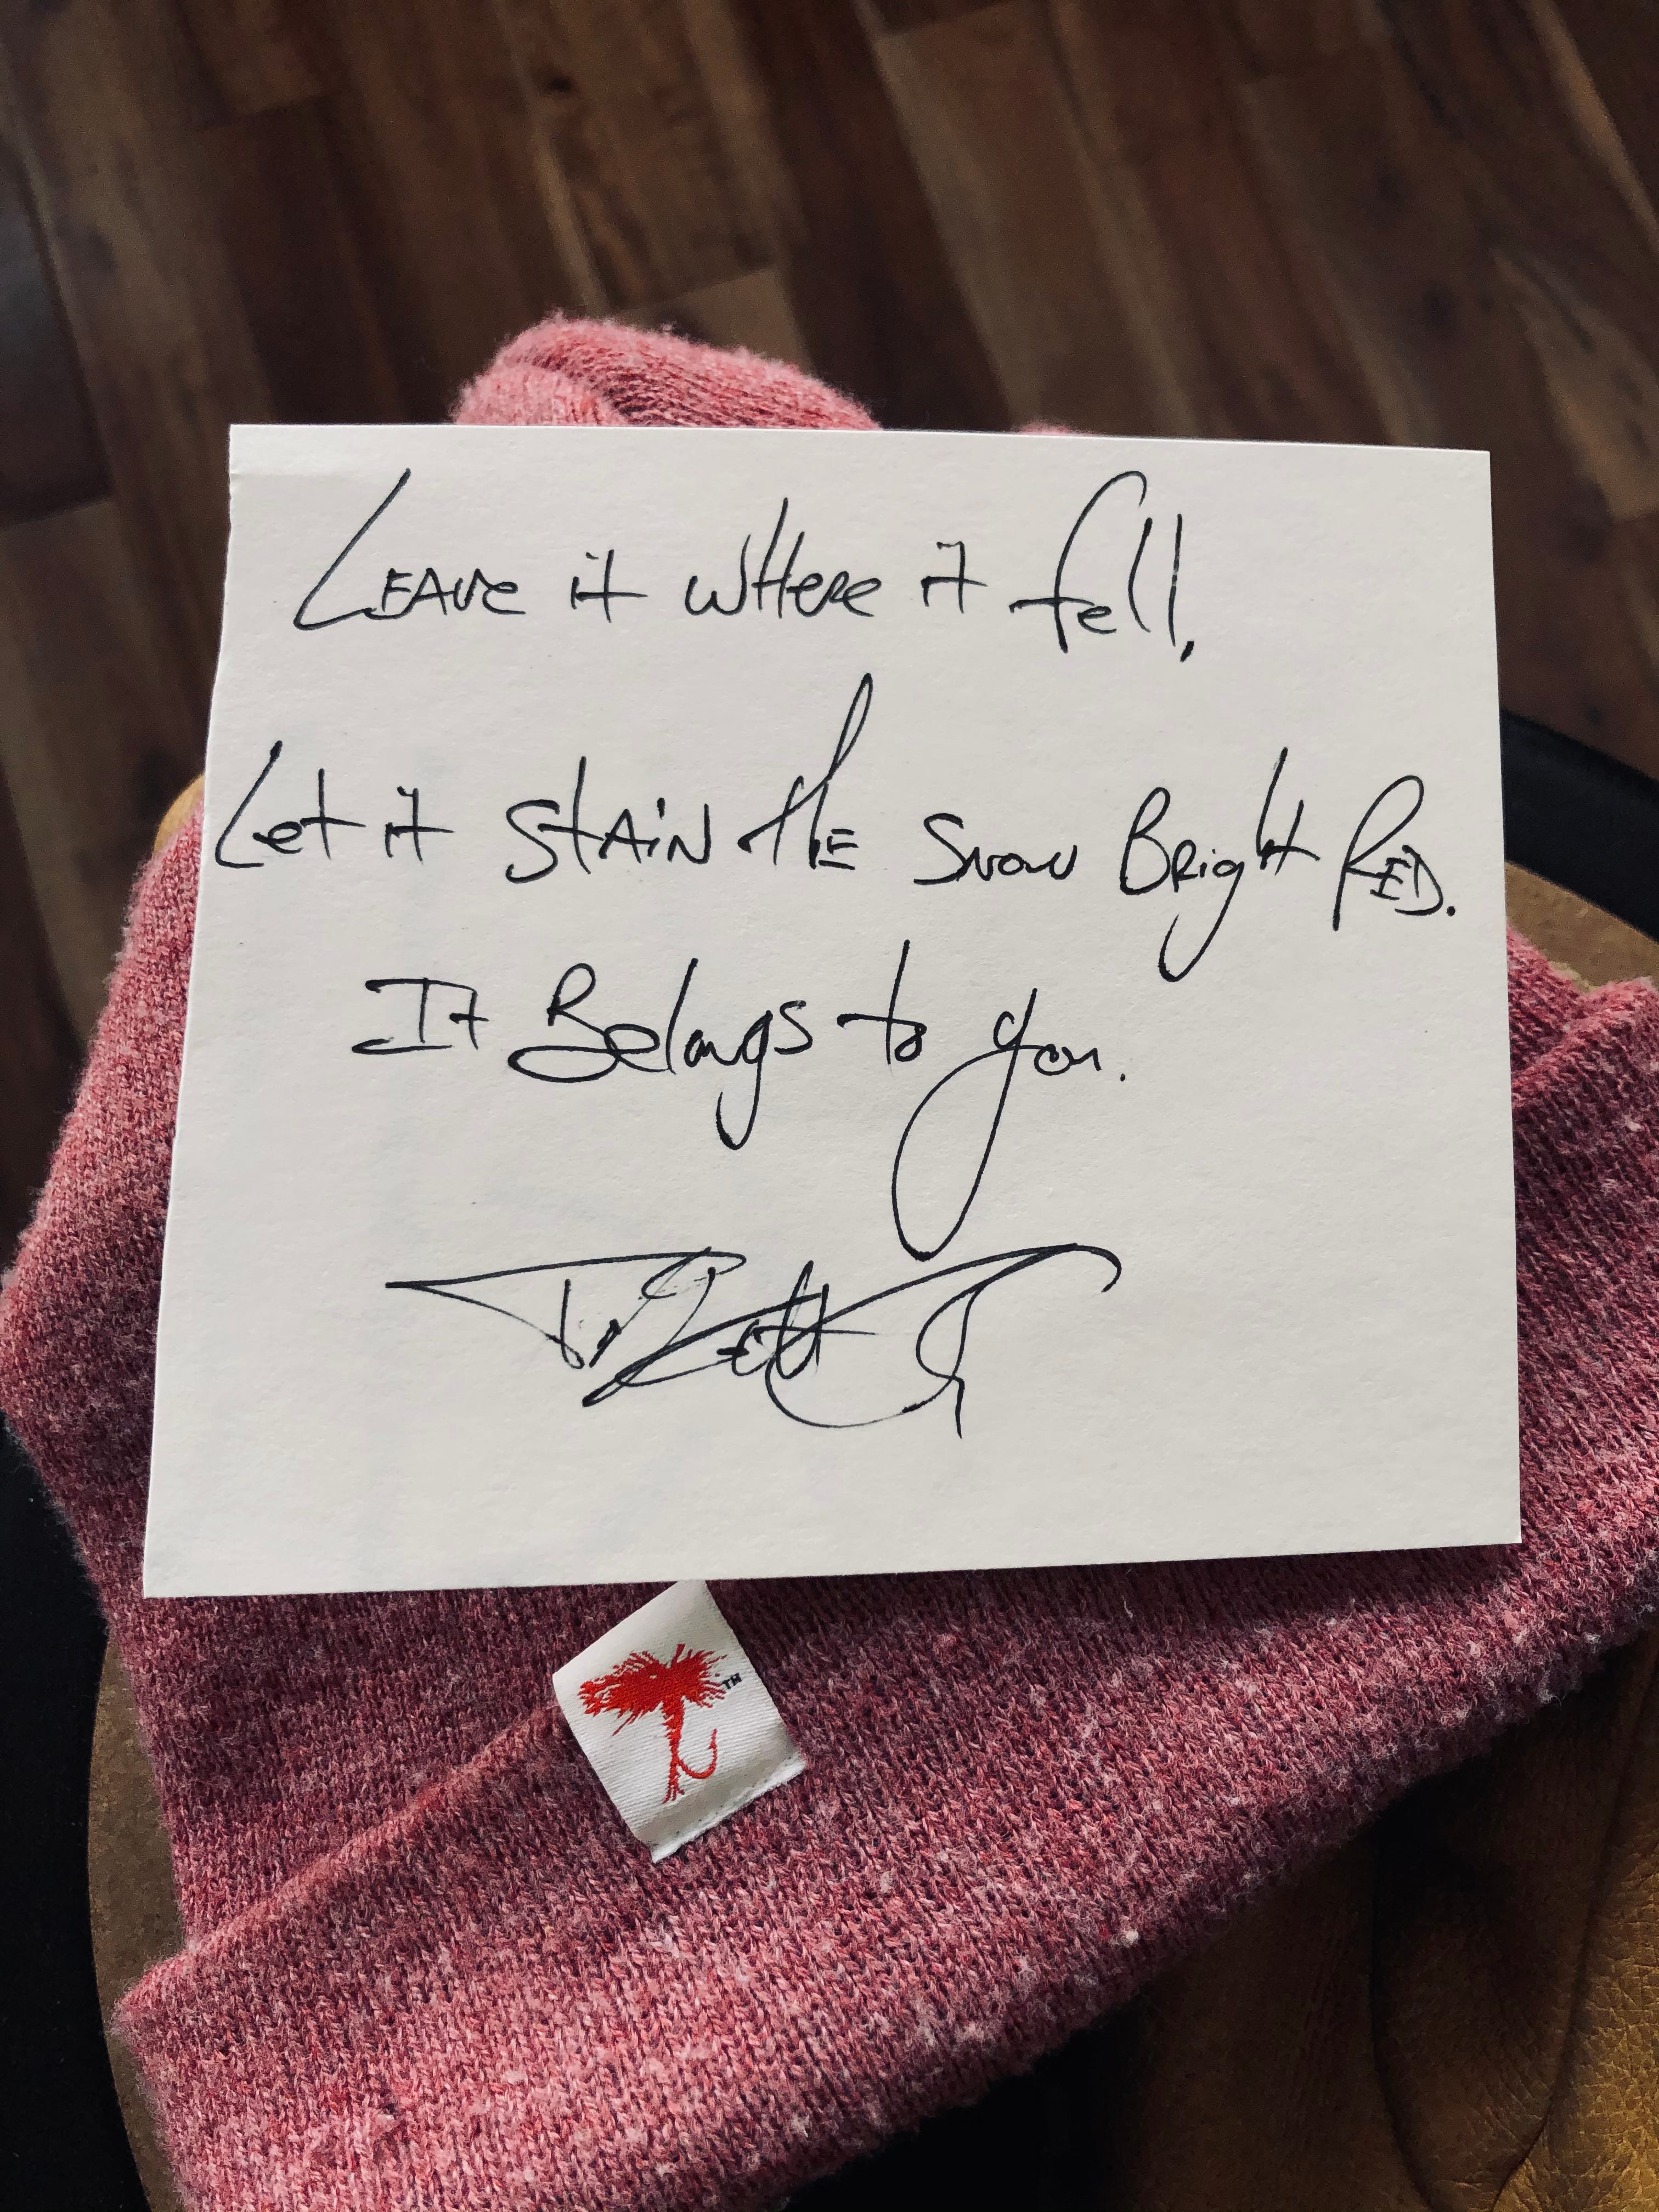 Leave it where it fell,
Let it stain the snow Bright Red.
It Belongs to you.
TM